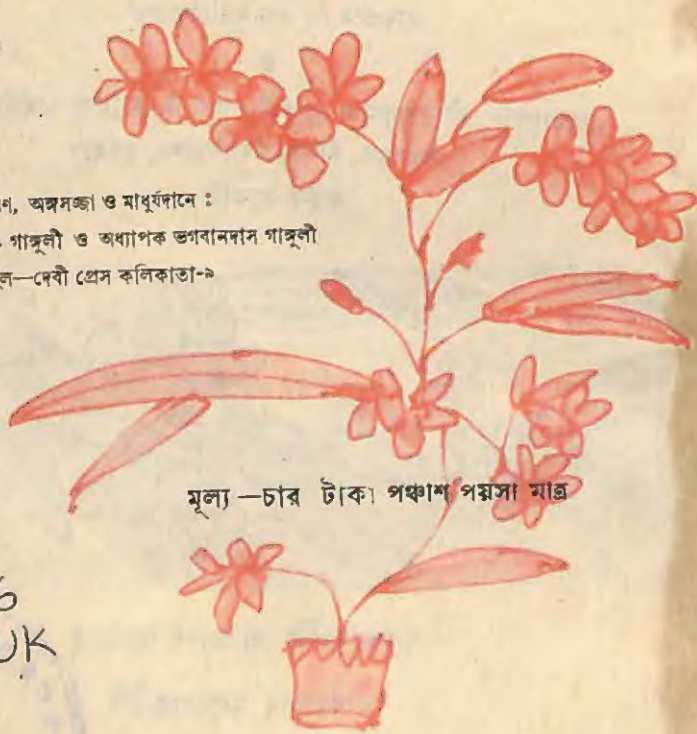 ণ, অঙ্গসজ্জা ও মাধুর্যদানে :
গাঙ্গুলী ও অধ্যাপক ভগবানদাস গাঙ্গুলী
ল—দেবী প্রেস কলিকাতা-৯
মূল্য —চার টাকা পঞ্চাশ পয়সা মাত্র
UK